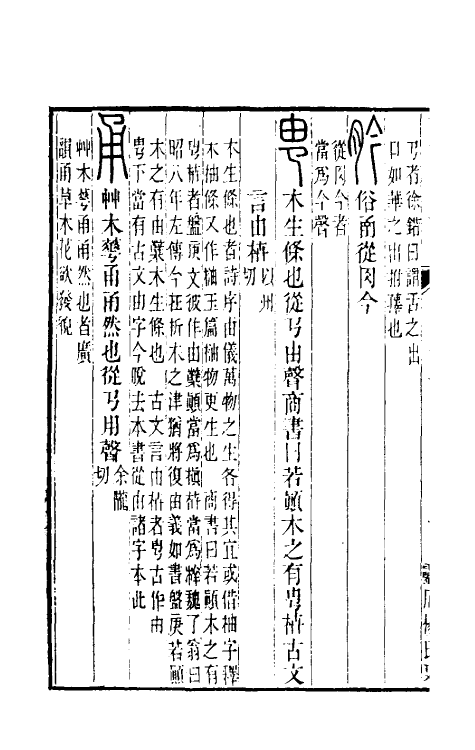 𢎘者徐鍇曰謂舌之出
口如華之出拊蕚也
肣 俗圅從肉今
從肉今者
當爲今聲
㽕 木生條也從𢎘由聲商書曰若顚木之有㽕枿古文
言由枿 以州切
木生條也者詩序由儀萬物之生各得其宜或借柚字釋
木柚條又作櫾玉篇櫾物更生也 商書曰若顚木之有
㽕枿者盤庚文彼作由蘖顚當爲槇枿當爲㰆魏了翁曰
昭八年左傳今在析木之津猶將復由義如書盤庚若顚
木之有由蘖木生條也 古文言由枿者㽕古作由
㽕下當有古文由字今脫去本書從由諸字本此
甬 艸木𠌶甬甬然也從𢎘用聲 余隴切
艸木𠌶甬甬然也者廣
韻甬草木花欲發皃